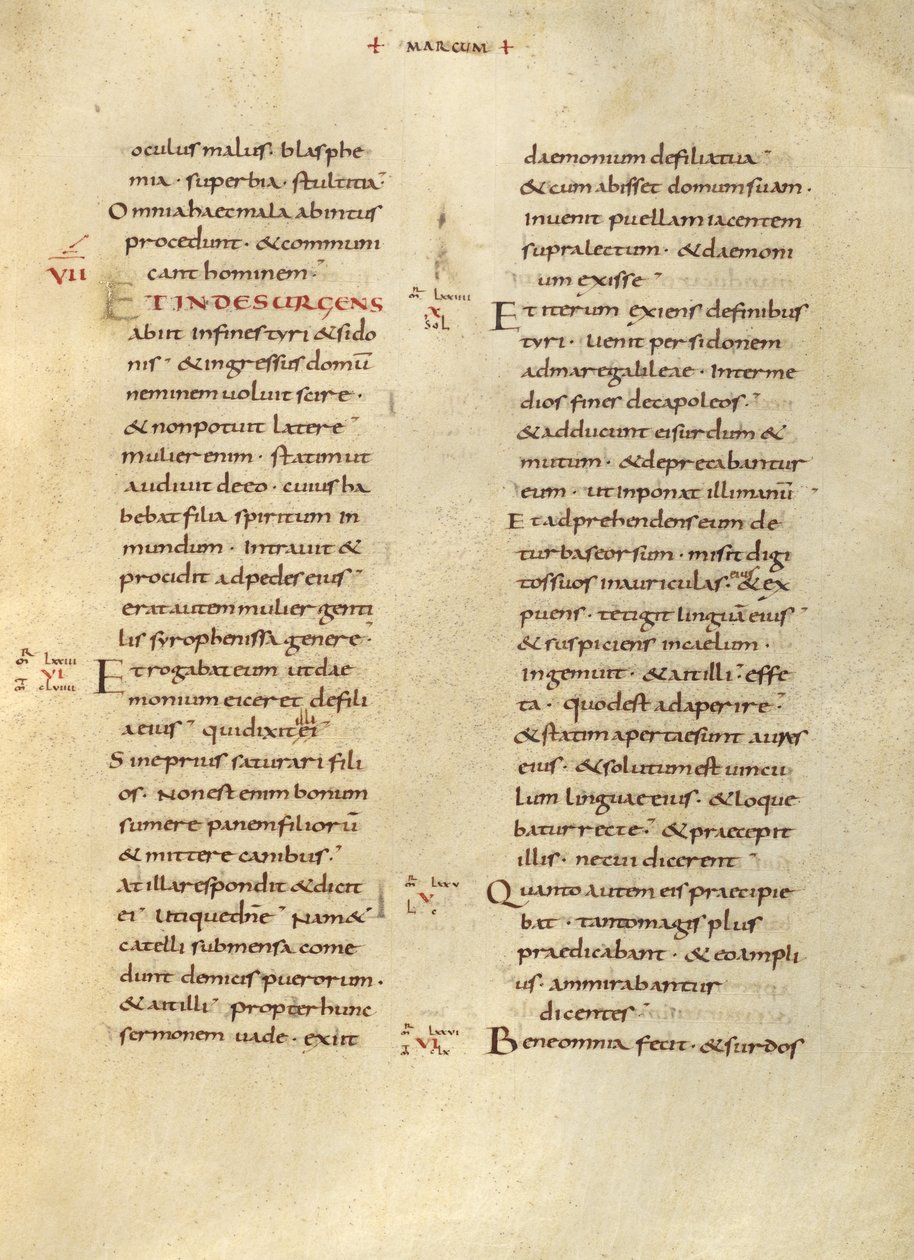 + MARCUM +
oculus malus· blasphe
mia· superbia· stultitia·
Omnia haec mala abintus
procedunt· & communi
cant hominem·
VII
ET INDE SURGENS
abiit in fines tyri & sido
nis & ingressus domū
neminem uoluit scire·
& non potuit latere
mulier enim· statim ut
audiuit de eo· cuius ha
bebat filia spiritum in
mundum· intrauit &
procidit ad pedes eius
erat autem mulier genti
lis syrophenissa genere·
mr lxxiii
VI
mt clviiii
Et rogabat eum ut dae
monium eiceret de fili
a eius qui dixit illi ei
Sine prius saturari fili
os· Non est enim bonum
sumere panem filiorū
& mittere canibus·
At illa respondit & dicit
ei Utique dn̄e Nam &
catelli sub mensa come
dunt de micis puerorum·
& ait illi propter hunc
sermonem uade· exiit
daemonium de filia tua
& cum abisset domum suam·
inuenit puellam iacentem
supra lectum· & daemoni
um exisse
mr lxxiiii
X
Sol
Et iterum exiens de finibus
tyri· Uenit per sidonem
ad mare galileae· Inter me
dios fines decapoleos·
& adducunt ei surdum &
mutum· & deprecabantur
eum· ut inponat illi manū
Et adprehendens eum de
turba seorsum· misit digi
tos suos in auriculas· eius & ex
puens· tetigit linguā eius
& suspiciens in caelum·
ingemuit· & ait illi· effe
ta· quod est adaperire·
& statim apertae sunt aures
eius· & solutum est uincu
lum linguae eius· & loque
batur recte· & praecepit
illis· ne cui dicerent
mr lxxv
V
L c
Quanto autem eis praecipie
bat· tanto magis plus
praedicabant· & eo ampli
us· ammirabantur
dicentes·
mr lxxvi
VI
mt clx
Bene omnia fecit· & surdos